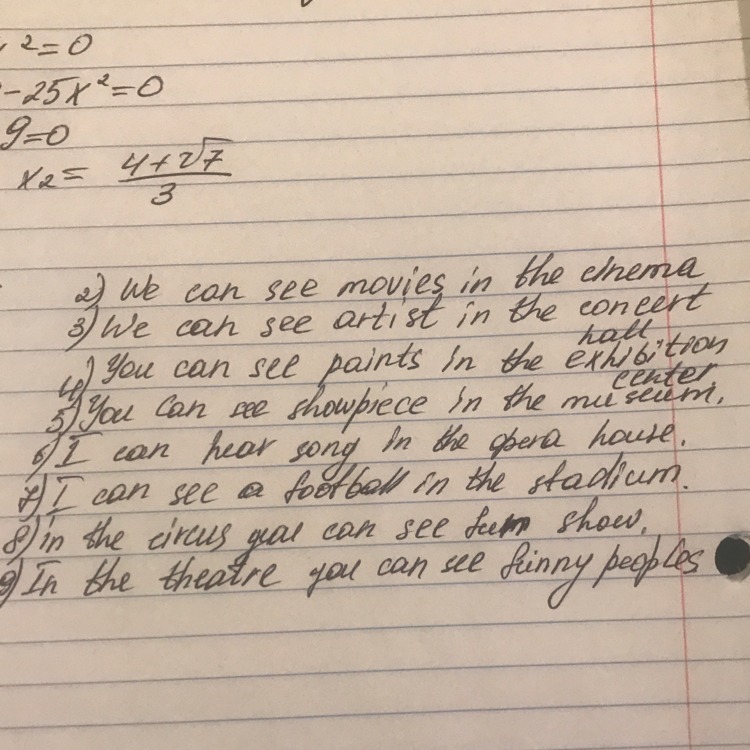 2=0
-25x²=0
9=0
x2= 4+√7
3
2) We can see movies in the cinema
3) We can see artist in the concert
hall
4) You can see paints in the exhibition
center
5) You can see showpiece in the museum.
6) I can hear song in the opera house.
7) I can see a football in the stadium.
8) in the circus you can see fun show.
9) In the theatre you can see funny peoples